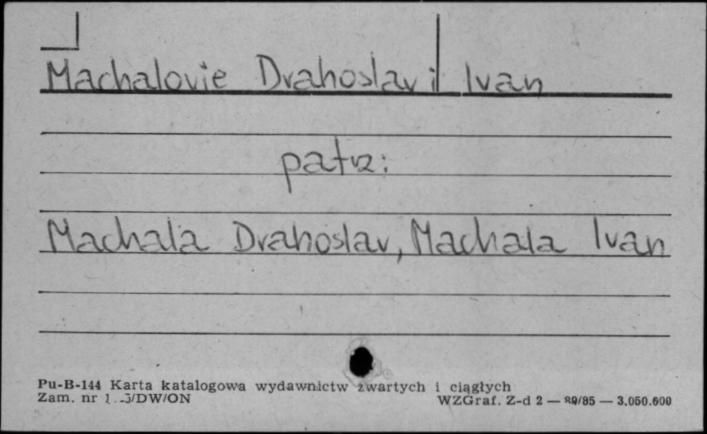 Machalovie Drahoslav i Ivan
patrz:
Machala Drahoslav, Machala Ivan
Pu-B-144 Karta katalogowa wydawnictw zwartych i ciągłych
Zam. nr /DW/ON WZGraf. Z-d 2 — 89/85 — 3.050.000